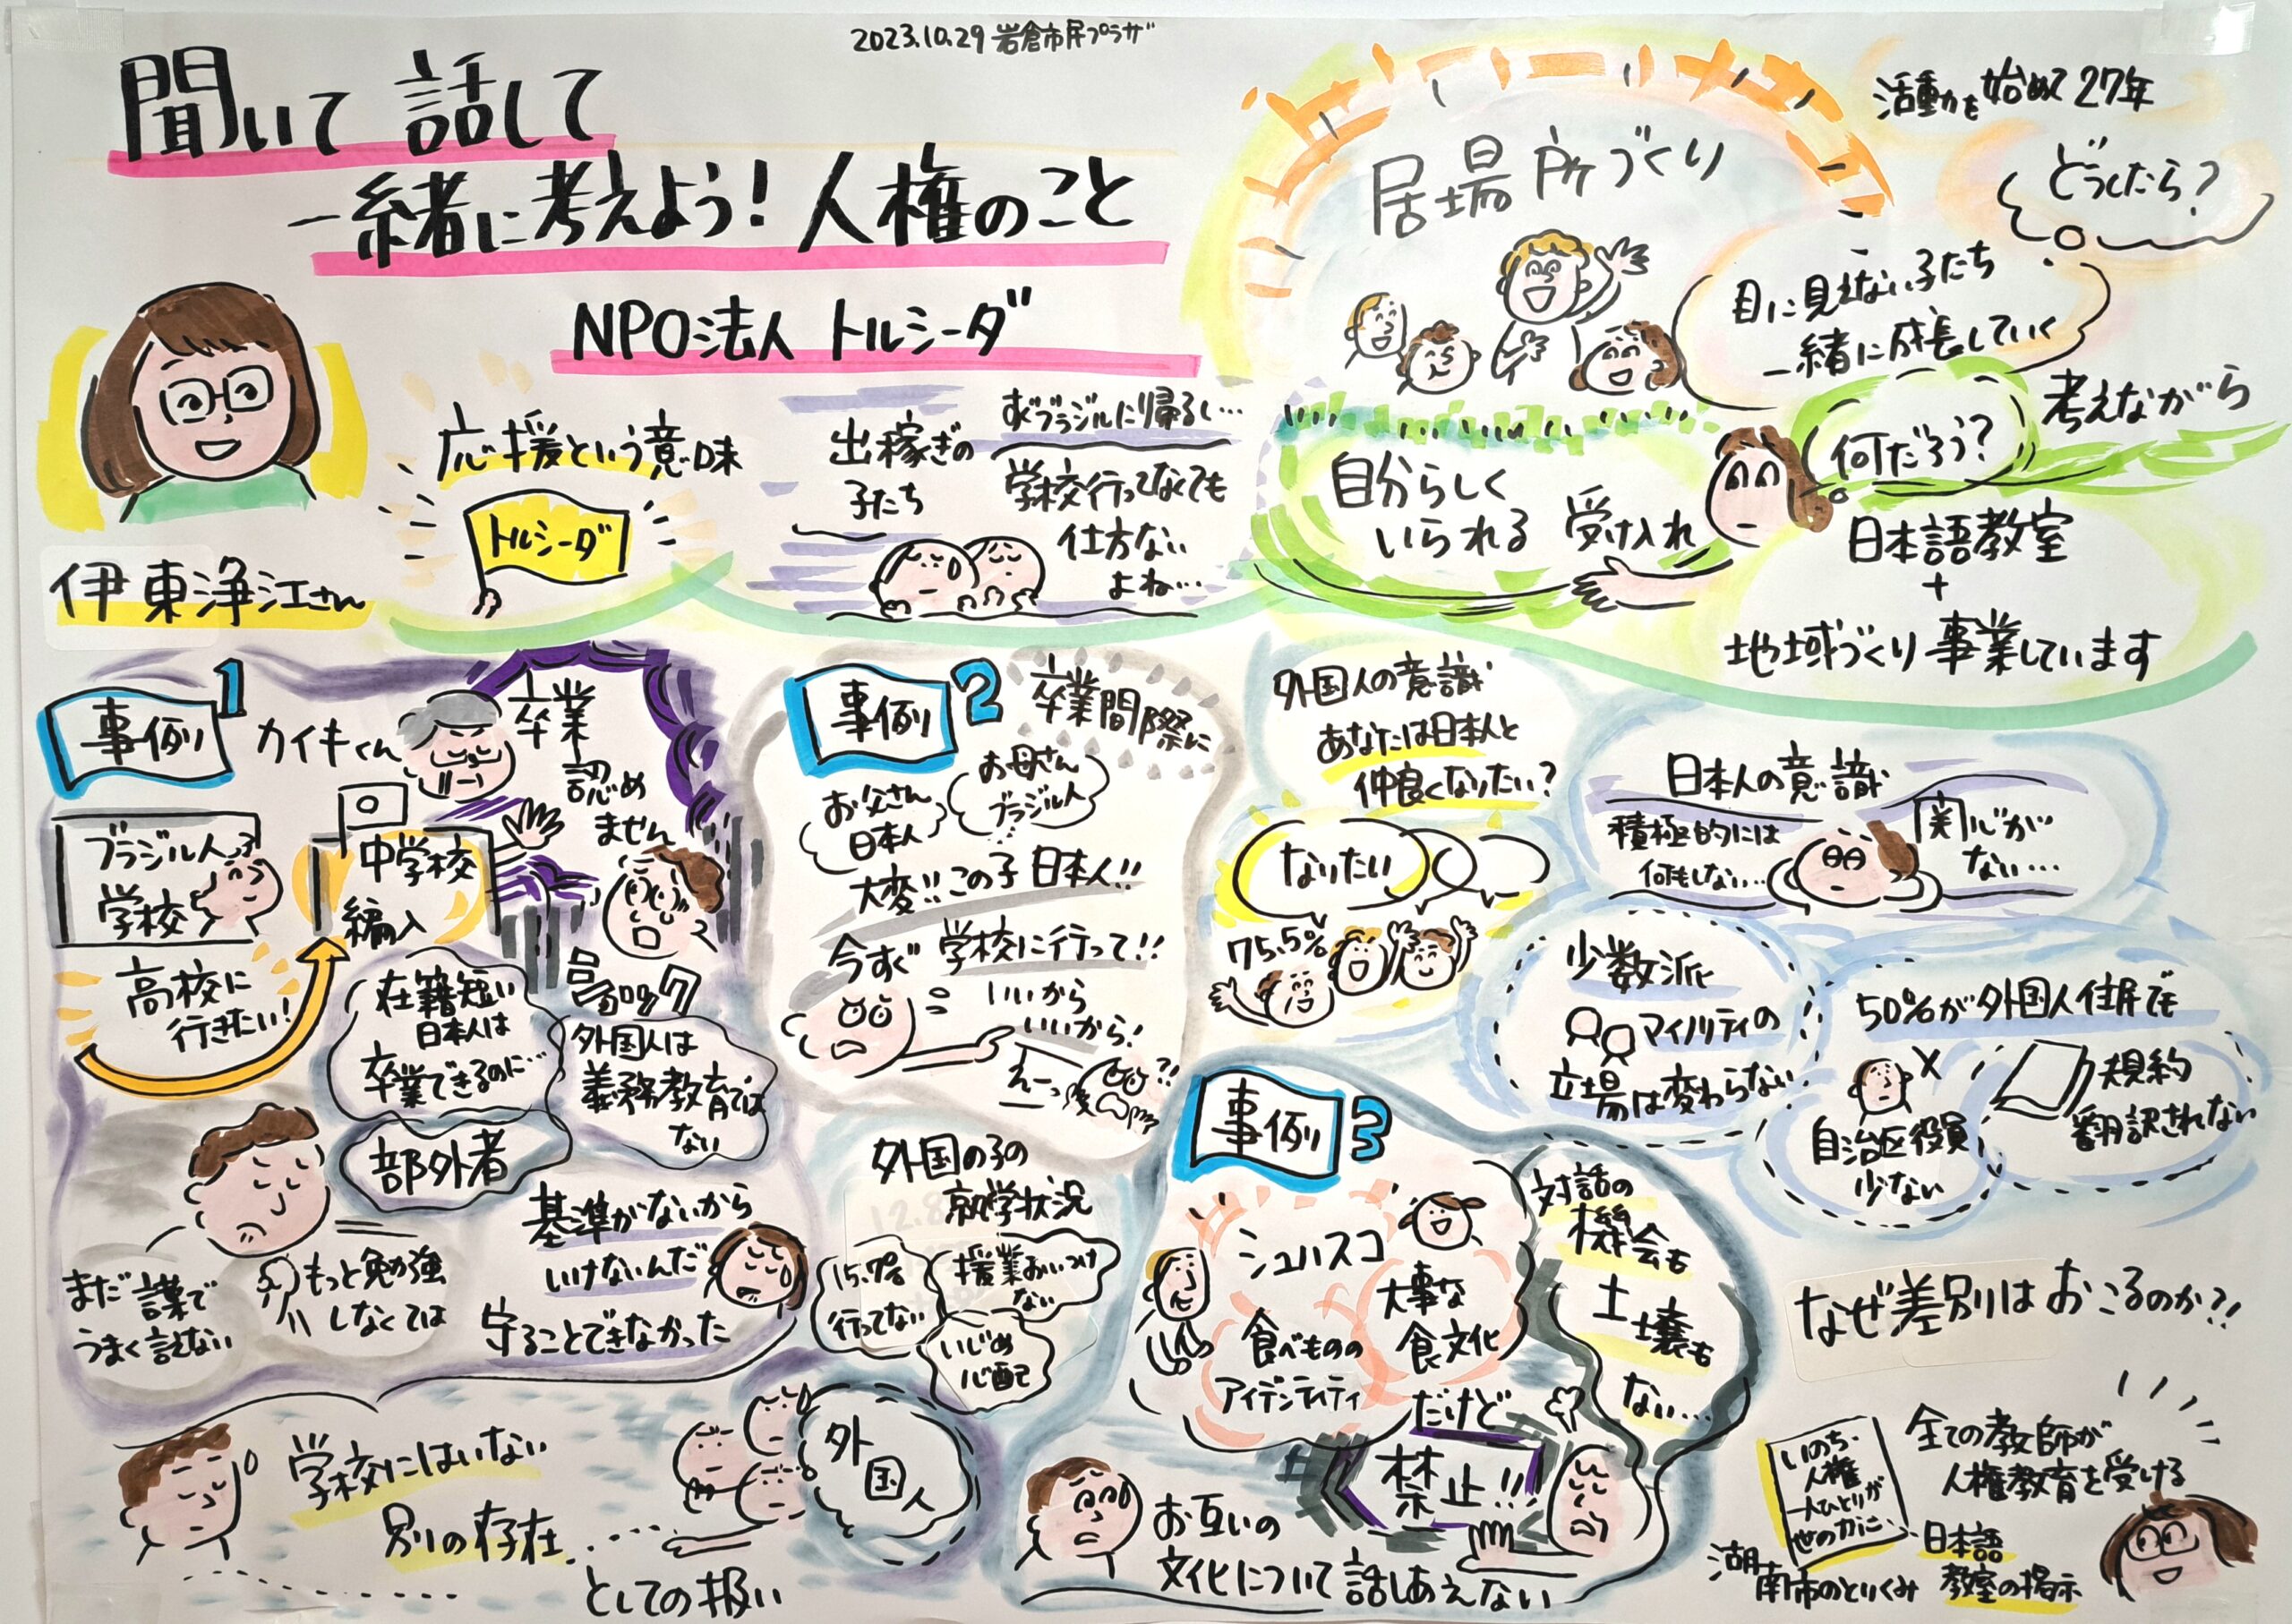 2023.10.29 岩倉市民プラザ
聞いて 話して
一緒に考えよう！人権のこと
NPO法人 トルシーダ
伊東浄江さん
応援という意味
トルシーダ
出稼ぎの
子たち
すぐブラジルに帰るし…
学校行ってなくても
仕方ない
よね…
居場所づくり
活動を始めて27年
どうしたら？
目に見えない子たち
一緒に成長していく
考えながら
何だろう？
自分らしく
いられる
受け入れ
日本語教室
+
地域づくり事業しています
事例1
カイキくん
ブラジル人
学校
高校に
行きたい！
中学校
編入
卒業
認め
ません
在籍短い
日本人は
卒業できるのに…
外国人は
義務教育では
ない
部外者
まだ言葉で
うまく言えない
もっと勉強
しなくては
基準がないから
いけないんだ
守ることできなかった
事例2
卒業間際に
お父さん
日本人
お母さん
ブラジル人
大変!!この子 日本人!!
今すぐ 学校に行って!!
いいから
いいから！
えーっ
?!
外国の子の
就学状況
15.7%
行ってない
授業おいつけ
ない
いじめ
心配
学校にはいない
別の存在
としての扱い
外国人
外国人の意識
あなたは日本人と
仲良くなりたい？
なりたい
75.5%
日本人の意識
積極的には
何もしない…
関心が
ない…
少数派
マイノリティの
立場は変わらない
50%が外国人住民でも
自治区役員
少ない
規約
翻訳されない
事例3
シュハスコ
食べものの
アイデンティティ
大事な
食文化
だけど
禁止!!
対話の
機会も
土壌も
ない…
お互いの
文化について話しあえない
なぜ差別はおこるのか?!
いのち・
人権
一人ひとりが
世の力に
全ての教師が
人権教育を受ける
湖南市のとりくみ
日本語
教室の掲示